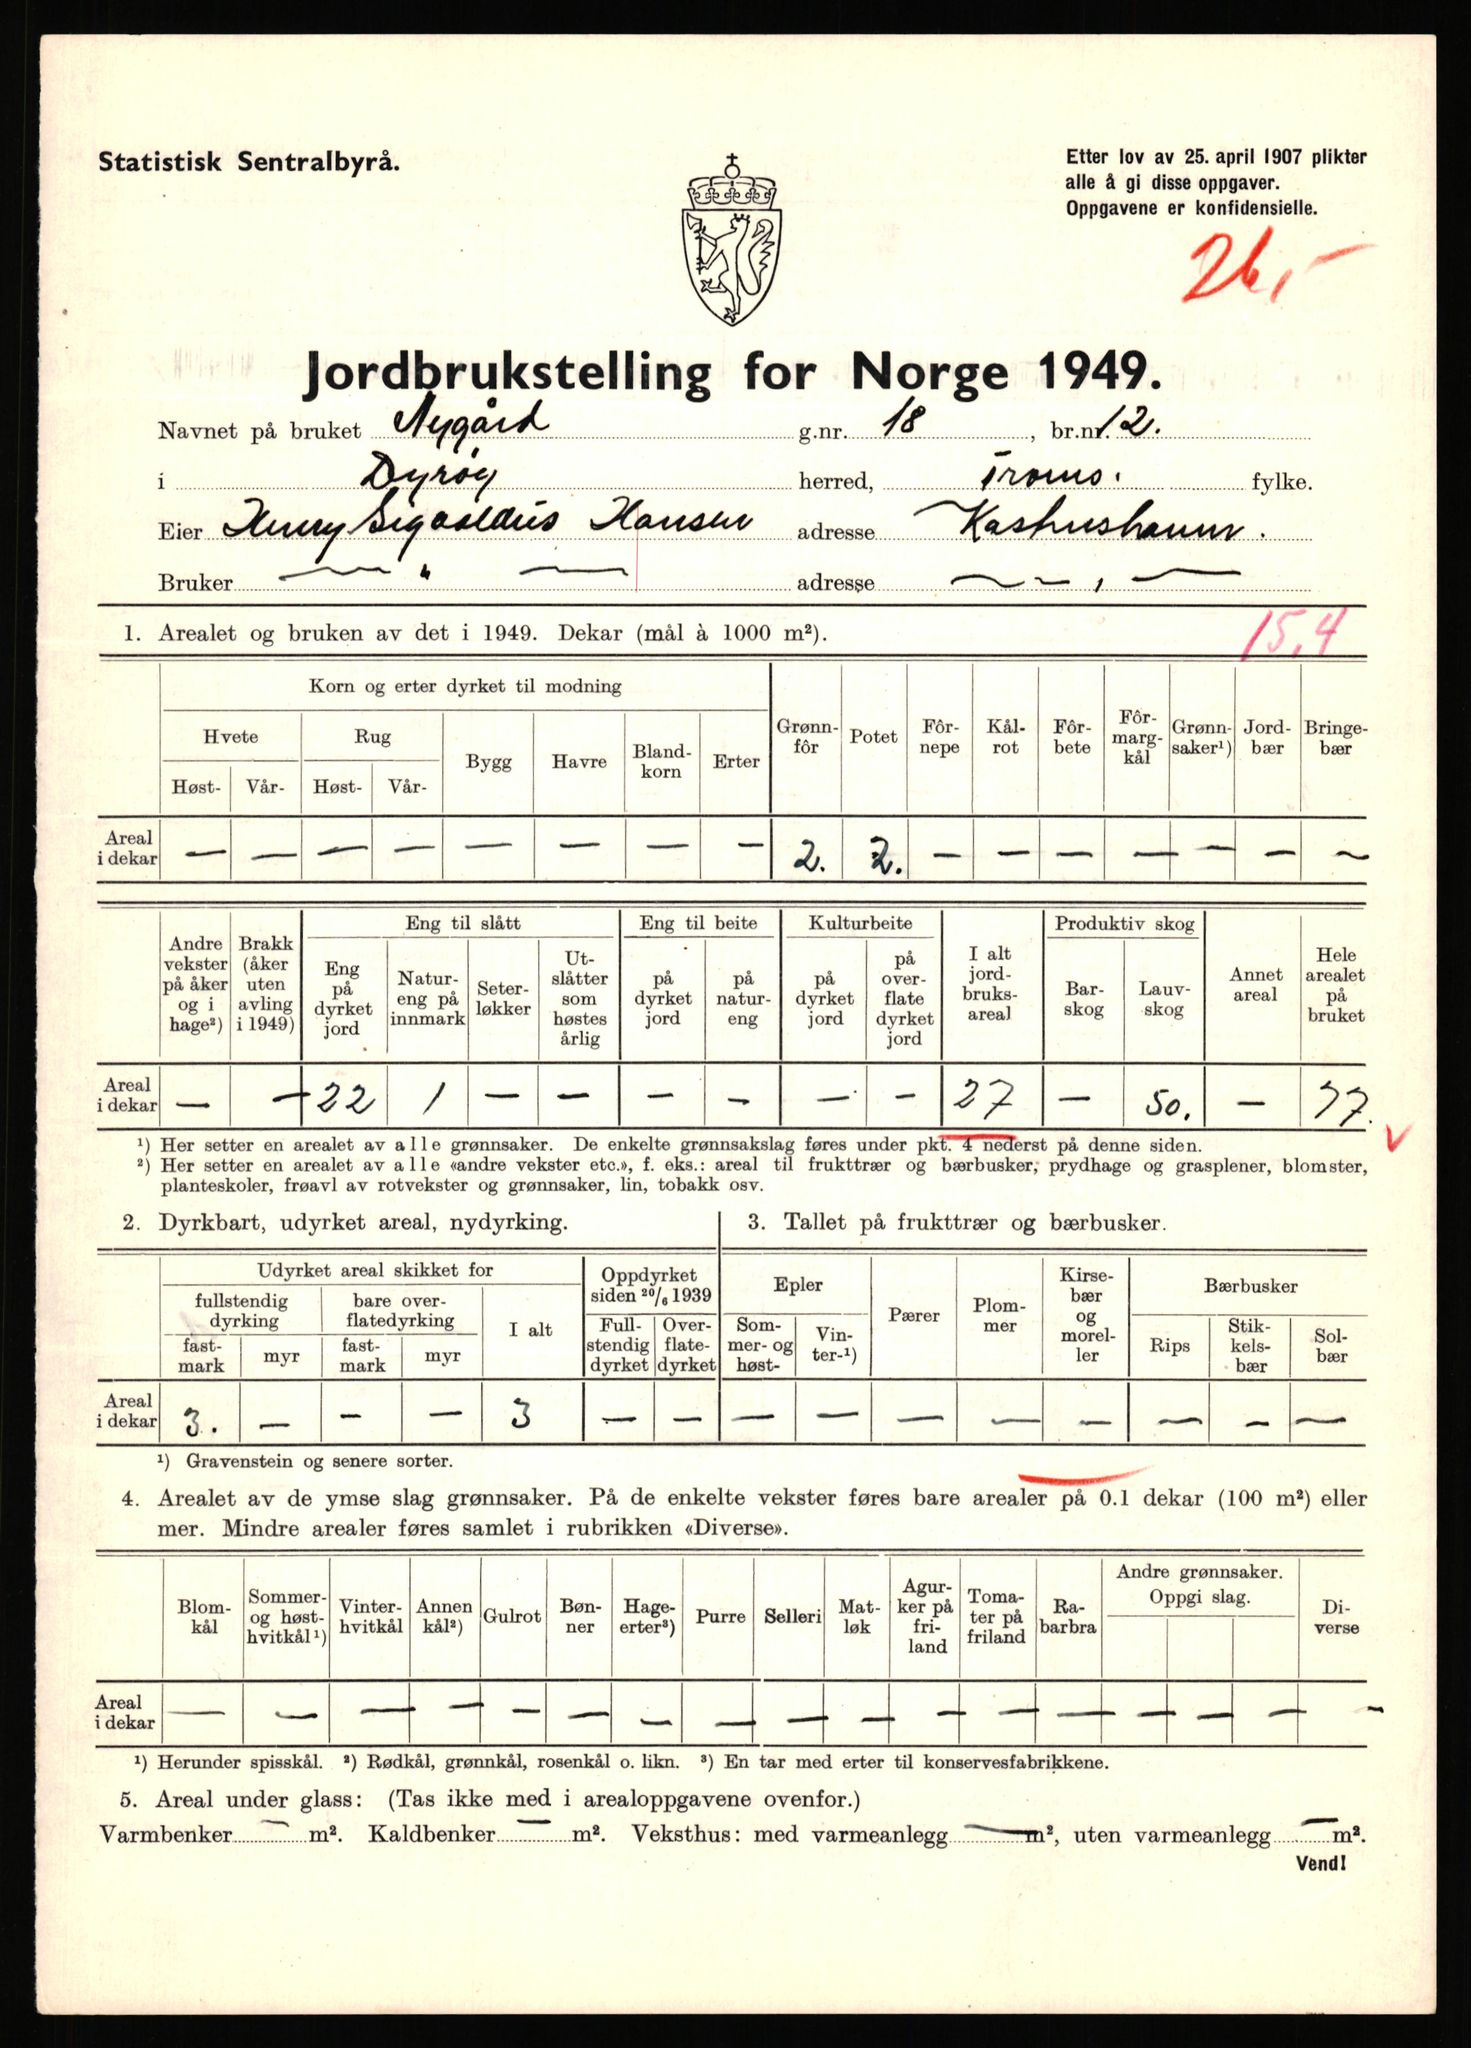 Statistisk Sentralbyrå.
Etter lov av 25. april 1907 plikter
alle å gi disse oppgaver.
Oppgavene er konfidensielle.
26,-
Jordbrukstelling for Norge 1949.
Navnet på bruket Nygård g.nr. 18, br.nr. 12.
i Dyrøy herred, Troms. fylke.
Eier Henry Sigvaldus Hansen adresse Kastneshamn.
Bruker — " — adresse — " —
1. Arealet og bruken av det i 1949. Dekar (mål à 1000 m²).
15,4
Korn og erter dyrket til modning
Hvete Rug Bygg Havre Bland-korn Erter Grønn-fôr Potet Fôr-nepe Kål-rot Fôr-bete Fôr-marg-kål Grønn-saker¹) Jord-bær Bringe-bær
Høst- Vår- Høst- Vår-
Areal i dekar — — — — — — — — 2. 2. — — — — — — —
Eng til slått Eng til beite Kulturbeite Produktiv skog
Andre vekster på åker og i hage²) Brakk (åker uten avling i 1949) Eng på dyrket jord Natur-eng på innmark Seter-løkker Ut-slåtter som høstes årlig på dyrket jord på natur-eng på dyrket jord på over-flate dyrket jord I alt jord-bruks-areal Bar-skog Lauv-skog Annet areal Hele arealet på bruket
Areal i dekar — — 22 1 — — — — — — 27 — 50. — 77.
¹) Her setter en arealet av alle grønnsaker. De enkelte grønnsakslag føres under pkt. 4 nederst på denne siden.
²) Her setter en arealet av alle «andre vekster etc.», f. eks.: areal til frukttrær og bærbusker, prydhage og grasplener, blomster,
planteskoler, frøavl av rotvekster og grønnsaker, lin, tobakk osv.
2. Dyrkbart, udyrket areal, nydyrking.
Udyrket areal skikket for Oppdyrket siden 20/6 1939
fullstendig dyrking bare over-flatedyrking I alt Full-stendig dyrket Over-flate-dyrket
fast-mark myr fast-mark myr
Areal i dekar 3. — — — 3 — —
3. Tallet på frukttrær og bærbusker.
Epler Pærer Plom-mer Kirse-bær og morel-ler Bærbusker
Som-mer- og høst- Vin-ter-¹) Rips Stik-kels-bær Sol-bær
— — — — — — — —
¹) Gravenstein og senere sorter.
4. Arealet av de ymse slag grønnsaker. På de enkelte vekster føres bare arealer på 0.1 dekar (100 m²) eller
mer. Mindre arealer føres samlet i rubrikken «Diverse».
Blom-kål Sommer- og høst-hvitkål¹) Vinter-hvitkål Annen kål²) Gulrot Bøn-ner Hage-erter³) Purre Selleri Mat-løk Agur-ker på fri-land Toma-ter på friland Ra-barbra Andre grønnsaker. Oppgi slag. Di-verse
Areal i dekar — — — — — — — — — — — — — — — — —
¹) Herunder spisskål. ²) Rødkål, grønnkål, rosenkål o. likn. ³) En tar med erter til konservesfabrikkene.
5. Areal under glass: (Tas ikke med i arealoppgavene ovenfor.)
Varmbenker — m². Kaldbenker — m². Veksthus: med varmeanlegg — m², uten varmeanlegg — m².
Vend!